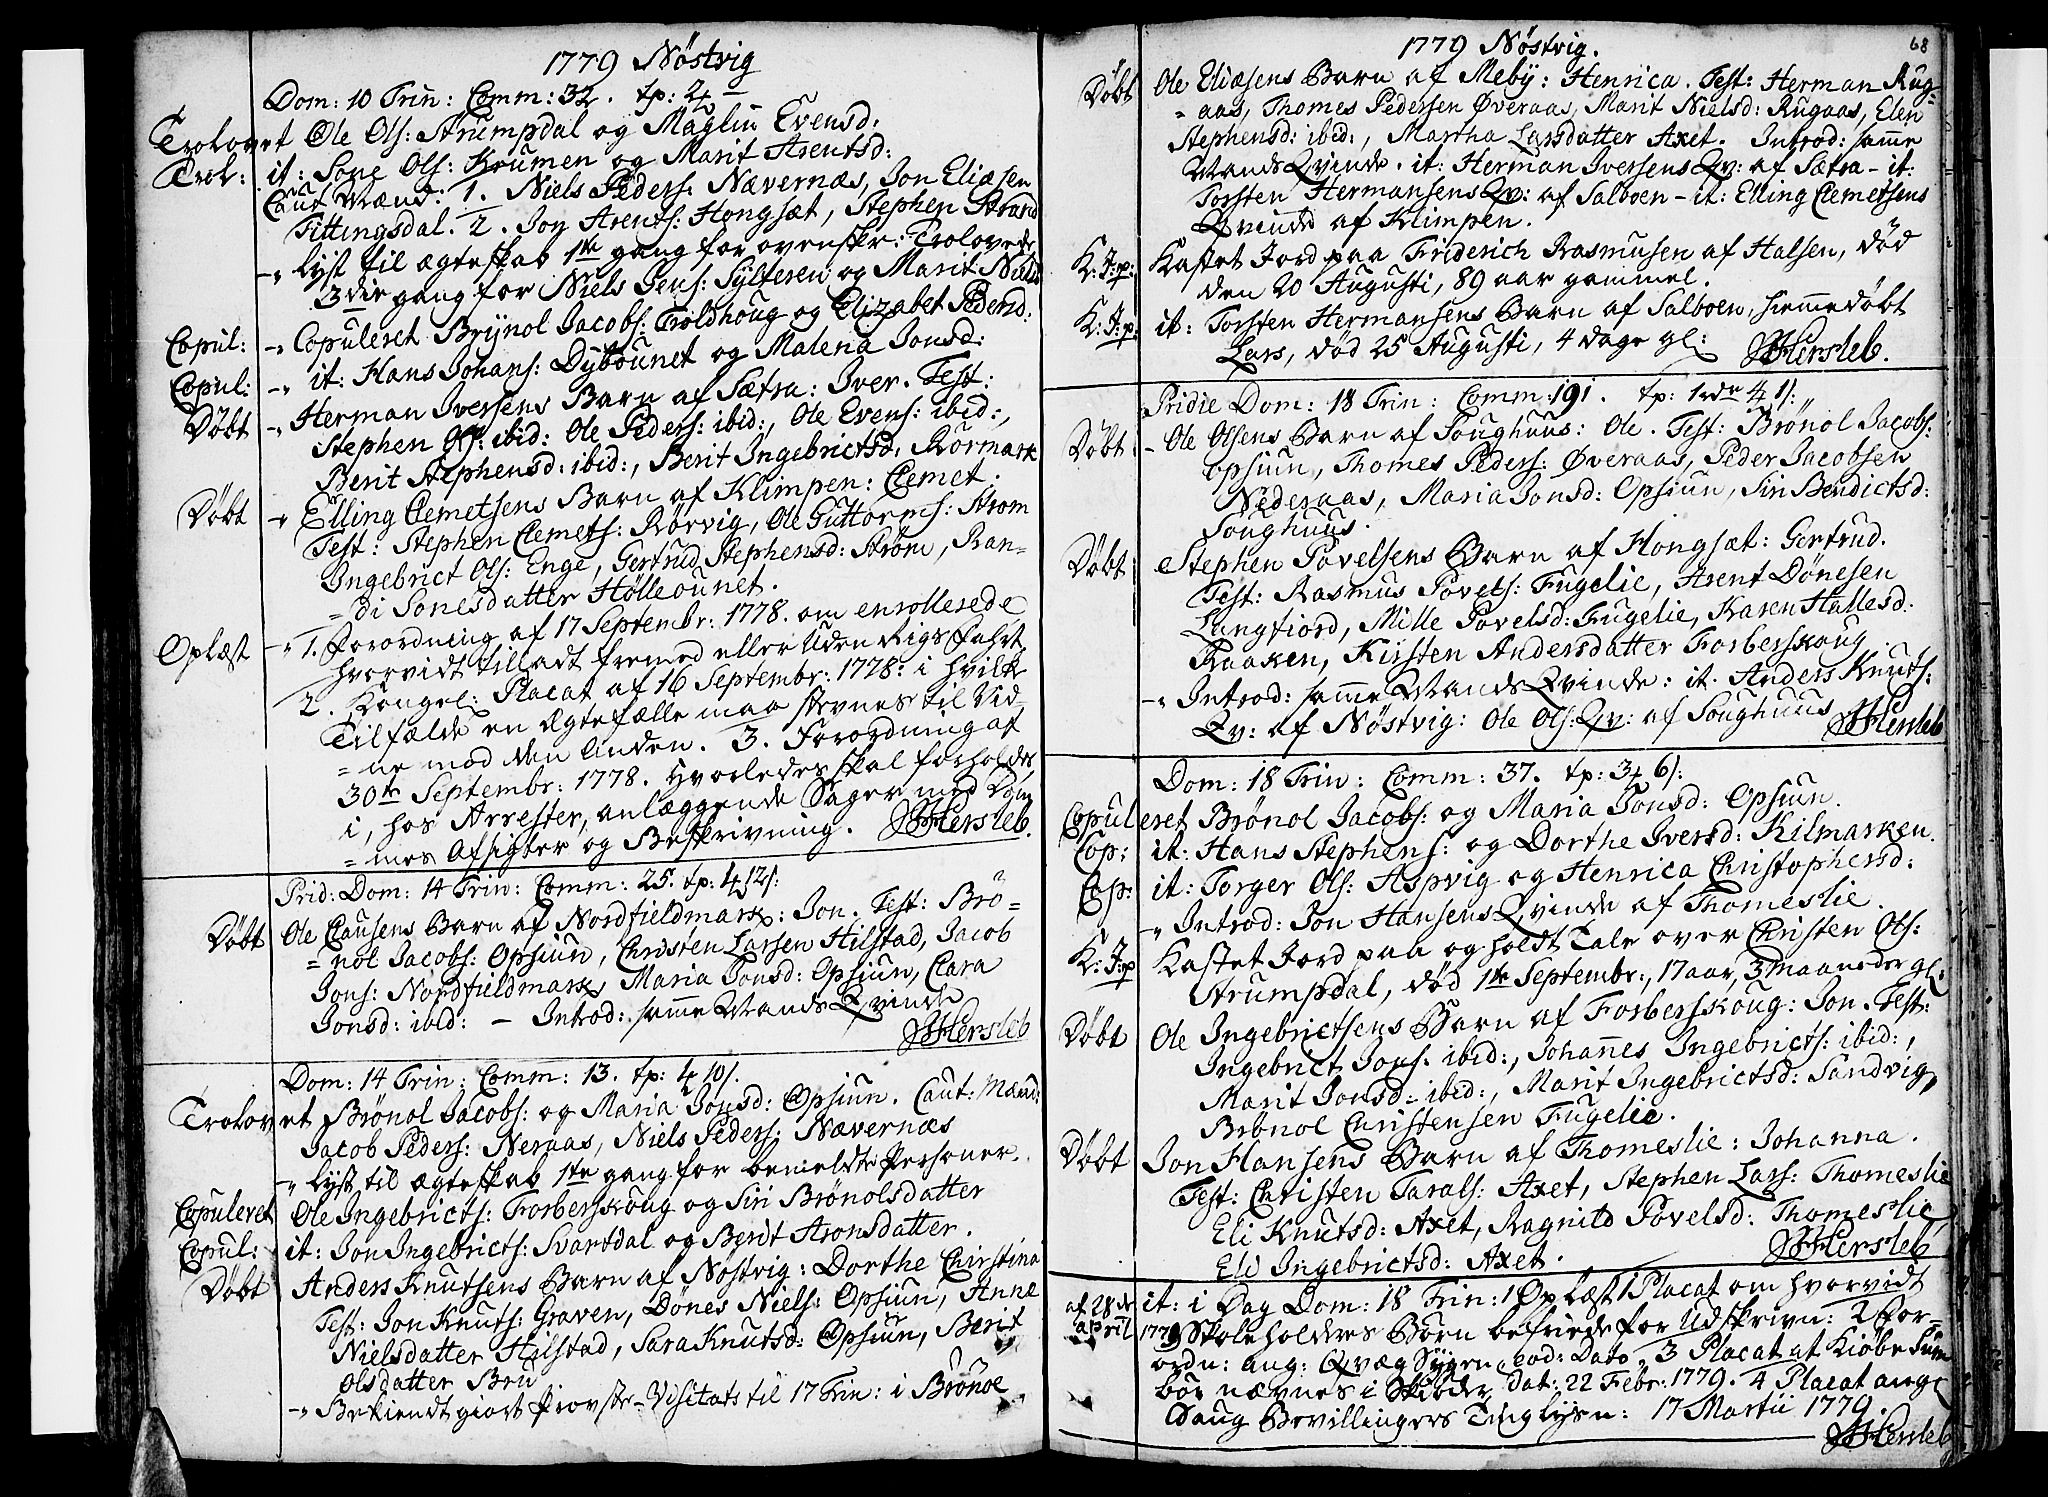 1779 Nöstvig
Dom: 10 Trin: Comm: 32. tp: 2
Trolovet Ole Ols: Strumpdal og Maglin Evensd:
Trol: it: Sone Ols: Krumen og Marit Arentsd:
Caut Mænd: 1. Niels Peders: Nævernæs, Jon Eliæsen
Fittingsdal. 2. Jon Arents: Hongsæt, Stephen Strand
-" Lyst til ægteskab 1te gang for ovenskr: Trolovede
3die gang for Niels Jens: Sylteren og Marit Nielsd
Copul: -" Copuleret Brynol Jacobs: Troldhoug og Elizabet Pedersd:
Copul: -" it: Hans Johans: Dybounet og Malena Jonsd:
Döbt -" Herman Iversens Barn af Sætra: Iver. Test:
Stephen Ols: ibid: Ole Peders: ibid:, Ole Evens: ibid:,
Berit Stephensd: ibid:, Berit Ingebrictsd, Rörmark
Döbt -" Elling Clemetsens Barn af Klimpen: Clemet:
Test: Stephen Clemets: Rörvig, Ole Guttorms: Strom
Ingebrict Ols: Enge, Gertrud Stephensd: Ström, Ran=
=di Sonesdatter Hölleounet.
Oplæst -" 1. Forordning af 17 Septembr: 1778. om enrollerede
hvorvidt tilladt fremed eller Uden Rigs Fahrt
2. Kongel: Placat af 16 Septembr: 1778: i hvilke
Tilfælde en Ægtefælle maa stevnes til Vid=
=ne mod den Anden. 3. Forordning af
30te Septembr: 1778. Hvorledes skal forholdes
i, hos Arrester, anlæggende Sager med Dom
=mes Afsigter og Beskrivning. JHHersleb.
Prid: Dom: 14 Trin: Comm: 25. tp: 4 12s:
Döbt Ole Clausens Barn af Nordfieldmark: Jon. Test: Brö=
=nol Jacobs: Opsiun, Christen Larsen Hilstad, Jacob
Jons: Nordfieldmark, Maria Jonsd: Opsiun, Clara
Jonsd: ibid: - Introd: samme Mands Qvinde
JHHersleb
Dom: 14 Trin: Comm: 13. tp: 4 10s.
Trolovet Brönol Jacobs: og Maria Jonsd: Opsiun. Caut: Mænd:
Jacob Peders: Neraas, Niels Peders: Nævernæs
-" Lyst til ægteskab 1te gang for bemeldte Personer.
Copuleret Ole Ingebricts: Forberskoug og Siri Brönolsdatter
Copul: it: Jon Ingebricts: Svartdal og Berit Aronsdatter.
Döbt Anders Knutsens Barn af Nostvig: Dorthe Chirstina
Test: Jon Knuts: Graven, Dönes Niels: Opsiun, Anne
Nielsdatter Hilstad, Sara Knutsd: Opsiun, Berit
Olsdatter Bru
-" Bekiendt giort Provste-Visitats til 17 Trin: i Brönoe
1779 Nöstvig. 68
Döbt Ole Eliæsens Barn af Meby: Henrica. Test: Herman Rug=
=aas, Thomes Pedersen Överaas, Marit Nielsd: Rugaas, Elen
Stephensd: ibid:, Martha Larsdatter Axet. Introd: samme
Mands Qvinde. it: Herman Iversens Qv: af Sætra - it:
Torsten Hermansens Qv: af Salboen - it: Elling Clemetsens
Qvinde af Klimpen.
K: J: p: Kastet Jord paa Friderich Rasmusen af Halsen, död
den 20 Augusti, 89 aar gammel.
K: J: p: it: Torsten Hermansens Barn af Salboen, hiemmedöbt
Lars, död 25 Augusti, 4 dage gl: JHHersleb.
Pridie Dom: 18 Trin: Comm: 191. tp: 1rdr 4 1s:
Döbt - Ole Olsens Barn af Soughuus: Ole. Test: Brönol Jacobs:
Opsiun, Thomes Peders: Överaas, Peder Jacobsen
Nederaas, Maria Jonsd: Opsiun, Siri Bendictsd:
Soughuus.
Döbt Stephen Povelsens Barn af Hongsæt: Gertrud.
Test: Rasmus Povels: Fugelie, Arent Dönesen
Langfiord, Mille Povelsd: Fugelie, Karen Hallesd:
Kaaken, Kirsten Andersdatter Forberskoug
-" Introd: samme Mands Qvinde: it. Anders Knuts:
Qv: af Nöstvig: Ole Ols: Qv: af Soughuus JHHersleb
Dom: 18 Trin: Comm: 37. tp: 3 4 6s:
Copuleret Brönol Jacobs: og Maria Jonsd: Opsiun.
Cop: it: Hans Stephens: og Dorthe Iversd: Kilmarken.
Cop: it: Torger Ols: Aspvig og Henrica Christophersd:
-" Introd: Jon Hansens Qvinde af Thomeslie.
K: J: p Kastet Jord paa og holdt Tale over Christen Ols:
Strumpdal, död 1te Septembr:, 17 aar, 3 maaneder gl:
Döbt Ole Ingebrictsens Barn af Forberskoug: Jon. Test:
Ingebrict Jons: ibid:, Johannes Ingebricts: ibid:,
Marit Jonsd: ibid:, Marit Ingebrictsd: Sandvig,
Brönol Christensen Fugelie.
Döbt Jon Hansens Barn af Thomeslie: Johanna.
Test: Christen Tarals: Axet, Stephen Lars: Thomeslie
Eli Knutsd: Axet, Ragnild Povelsd: Thomeslie
Eli Ingebrictsd: Axet. JHHersleb
af 28de it: i Dag Dom: 18 Trin: Oplæst 1 Placat om hvorvidt
april 1779 Skoleholderes Börn befriede for Udskrivn: 2 For=
ordn: ang: Qvæg Sygen, eod: Dato, 3 Placat at Kiöbe Sum
bör nævnes i Skiöder, dat: 22 Febr: 1779. 4 Placat ang:
Bevillingers Tinglysn: 17 Martii 1779.
JHHersleb